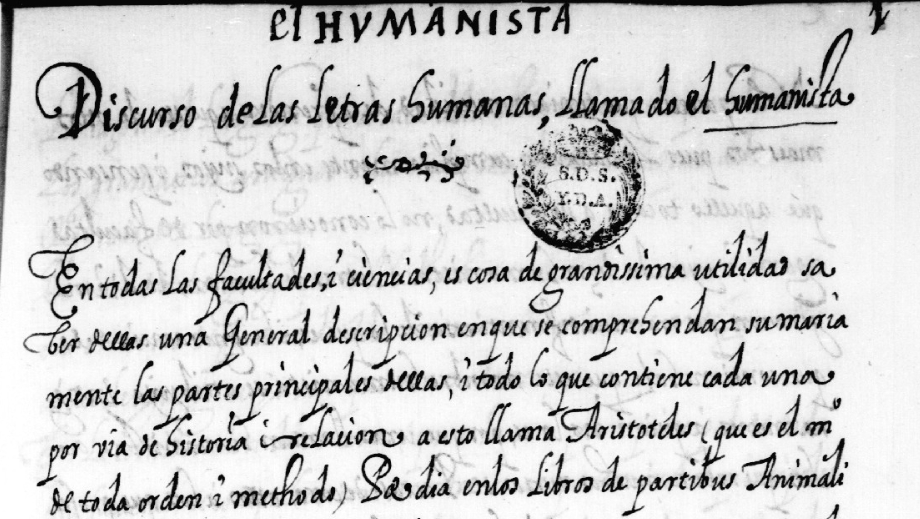 el HVMANISTA
Discurso de las letras humanas, llamado el humanista
S.D.S.
Y.D.A.
En todas las facultades, i ciencias, es cosa de grandissima utilidad sa
ber dellas una General descripcion en que se comprehendan sumaria
mente las partes principales dellas, i todo lo que contiene cada una
por via de historia i relacion a esto llama Aristoteles (que es el mº
de toda orden i methodo) Pædia en los Libros de partibus Animali